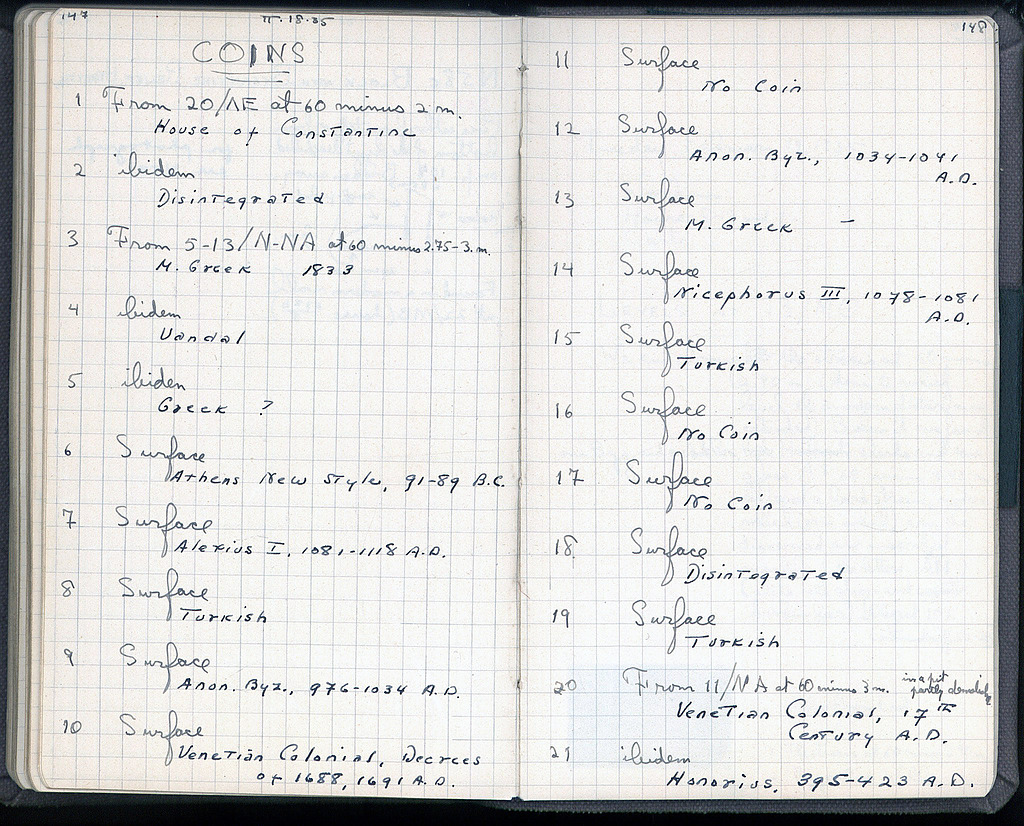 147
II.18.35
COINS
1 From 20/ΛΕ at 60 minus 2 m.
House of Constantine
2 ibidem
Disintegrated
3 From 5-13/N-NA at 60 minus 2.75-3.m.
M. Greek 1833
4 ibidem
Vandal
5 ibidem
Greek ?
6 Surface
Athens New Style, 91-89 B.C.
7 Surface
Alexius I, 1081-1118 A.D.
8 Surface
Turkish
9 Surface
Anon. Byz., 976-1034 A.D.
10 Surface
Venetian Colonial, Decrees
of 1688, 1691 A.D.
148
11 Surface
No Coin
12 Surface
Anon. Byz., 1034-1041
A.D.
13 Surface
M. Greek —
14 Surface
Nicephorus III, 1078-1081
A.D.
15 Surface
Turkish
16 Surface
No Coin
17 Surface
No Coin
18 Surface
Disintegrated
19 Surface
Turkish
20 From 11/NA at 60 minus 3 m. in a pit
partly
Venetian Colonial, 17th
Century A.D.
21 ibidem
Honorius, 395-423 A.D.